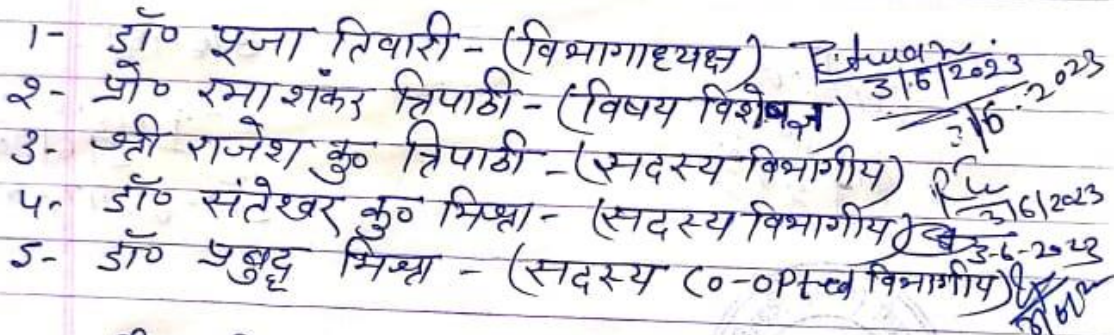 1- डॉ० पूजा तिवारी - (विभागाध्यक्ष) 3/6/2023
2- प्रो० रमाशंकर त्रिपाठी - (विषय विशेषज्ञ) 3/6.2023
3- श्री राजेश कु० त्रिपाठी - (सदस्य विभागीय) 3/6/2023
4- डॉ० संतेश्वर कु० मिश्रा - (सदस्य विभागीय) 3-6-2023
5- डॉ० प्रबुद्ध मिश्रा - (सदस्य Co-opted विभागीय)